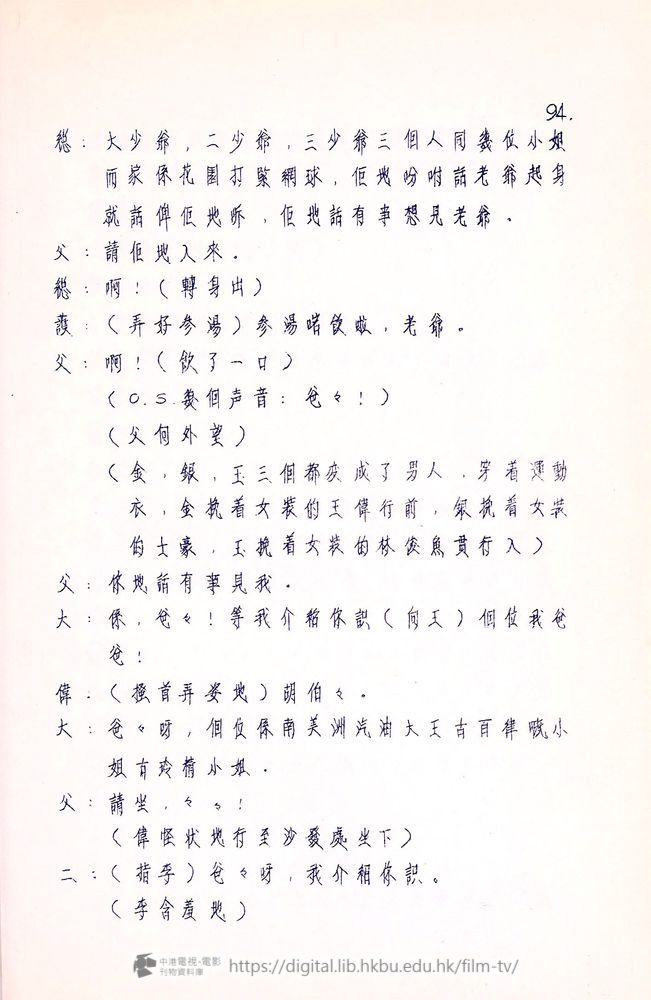 94.
總：大少爺，二少爺，三少爺三個人同幾位小姐
而家係花園打緊網球，佢地吩咐話老爺起身
就話俾佢地听，佢地話有事想見老爺。
父：請佢地入來。
總：啊！（轉身出）
護：（弄好参湯）参湯啱飲啦，老爺。
父：啊！（飲了一口）
（O.S.幾個声音：爸々！）
（父向外望）
（金，銀，玉三個都变成了男人，穿着運動
衣，金挽着女装的王偉行前，銀挽着女装
的士豪，玉挽着女装的林俊魚貫行入）
父：你地話有事見我。
大：係，爸々！等我介紹你識（向王）個位我爸
爸！
偉：（搔首弄姿地）胡伯々。
大：爸々呀，個位係南美洲汽油大王古百律嘅小
姐古玲精小姐。
父：請坐，々々！
（偉怪狀地行至沙發處坐下）
二：（指李）爸々呀，我介紹你識。
（李含羞地）
中港電視・電影
刊物資料庫
https://digital.lib.hkbu.edu.hk/film-tv/